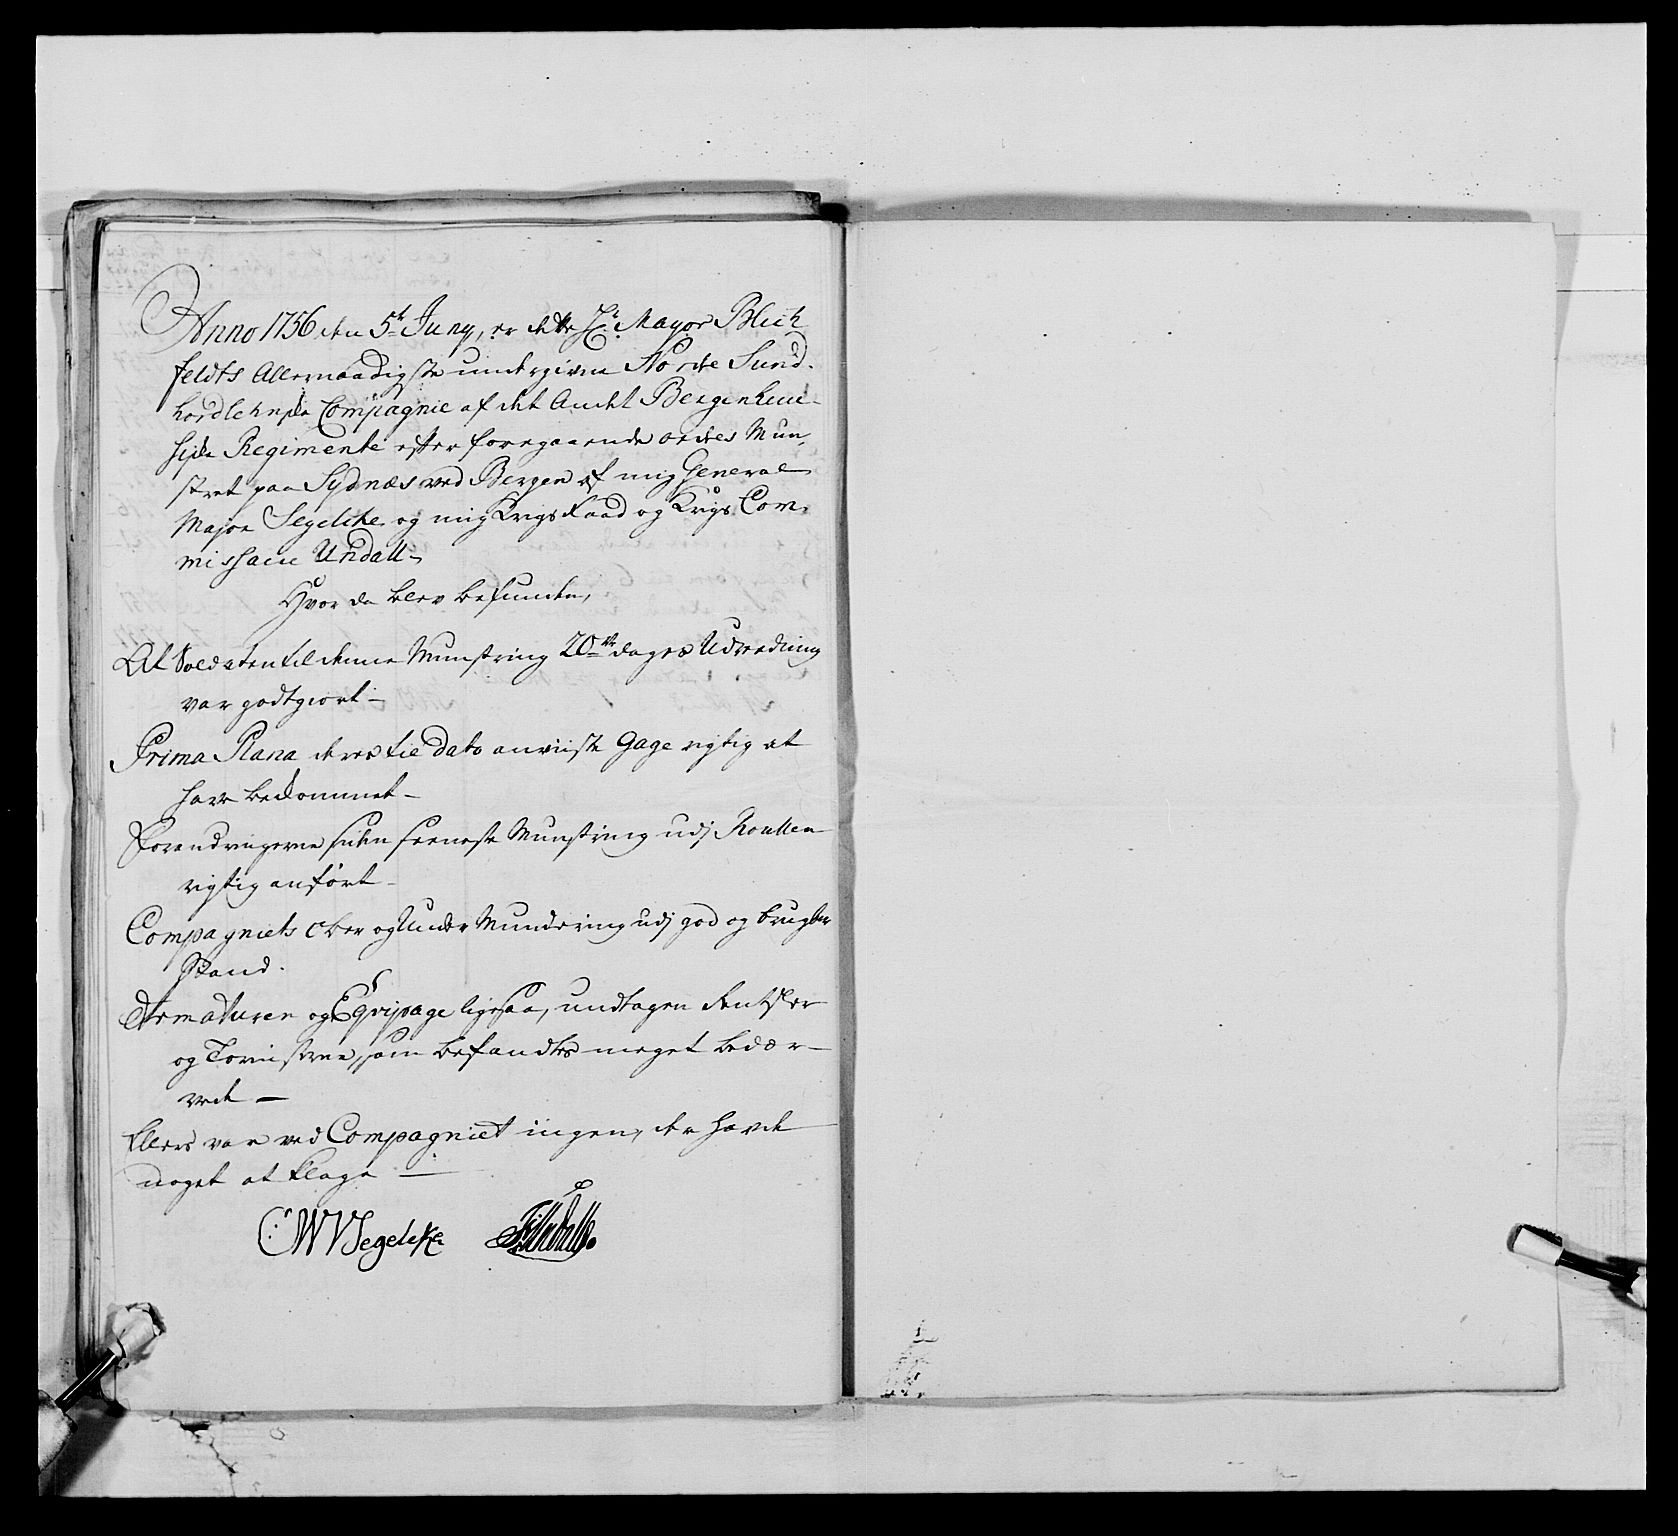 Anno 1756 den 5t Juny, er dette Hr. Mayor Blich
feldts Allernaadigste undergivne Nordre Sund-
hordlehnske Compagnie af det Andet Bergenhuu-
siske Regimente efter foregaaende ordres Mun-
stret paa Sydnæs ved Bergen af mig General
Major Segelcke og mig Krigs Raad og Krigs Com-
missaire Undall-
Hvor da blev befunden,
At Soldaten til denne Munstring 20de dages Udreedning
var godtgiort -
Prima Plana deres til dato anviiste Gage rigtig at
have bekommet -
Forandringerne siden seeneste Munstring udj Roullen
rigtig anført -
Compagniets Ober og Under Mundering udj god og brugbar
Stand.
Armaturen og Eqvipage ligesaa, undtagen Rentsler
og Tornistrene, som befandtes meget bedær-
vede -
Ellers var ved Compagniet ingen, der havde
noget at klage -
CWVSegelcke Undall.